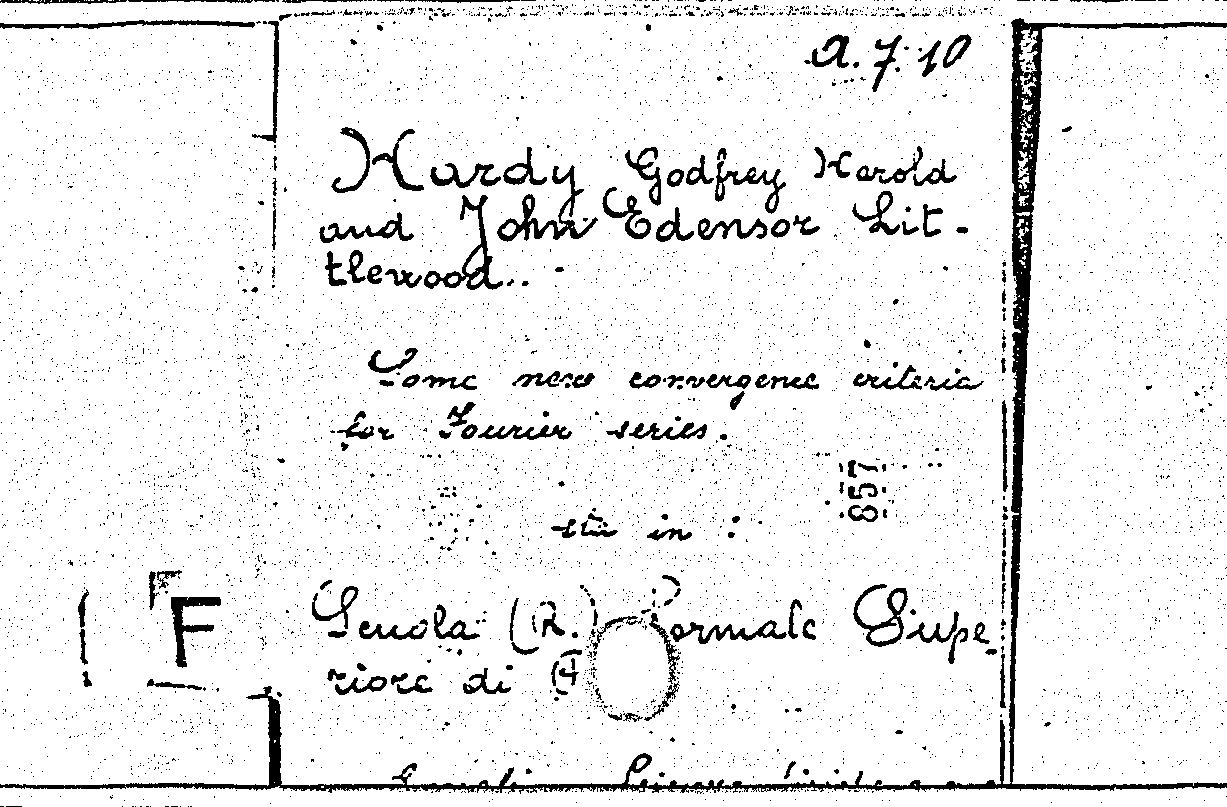 A.7.10
Hardy Godfrey Harold
and John Edensor Lit-
tlewood..
Some new convergence criteria
for Fourier series.
857
sta in :
F
Scuola (R.) Normale Supe-
riore di